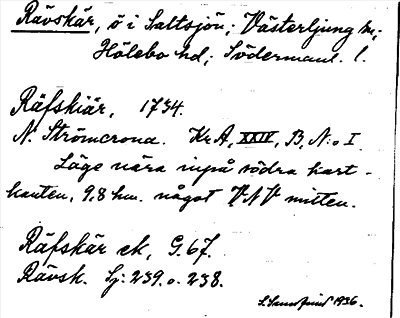 Rävskär, ö i Saltsjön; Västerljung sn;
Hölebo hd; Södermanl. l.
Räfskiär, 1734.
N. Strömcrona. Kr. A, XXIV, B, N:o I.
Läge nära inpå södra kart-
kanten, 9,8 km. något VNV mitten.
Räfskär ek, G. 67.
Rävsk. Sj: 239. o. 238.
1936.